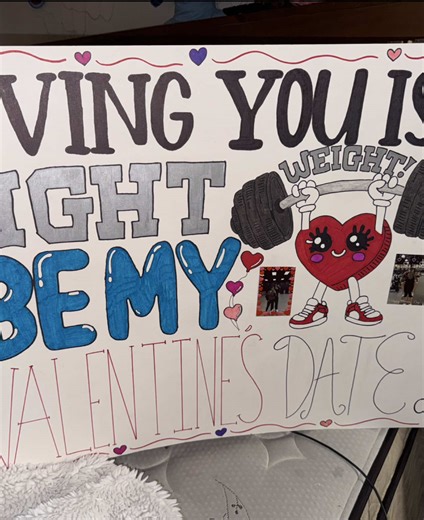 VING YOU IS
IGHT WEIGHT!
BE MY
VALENTINE'S DATE